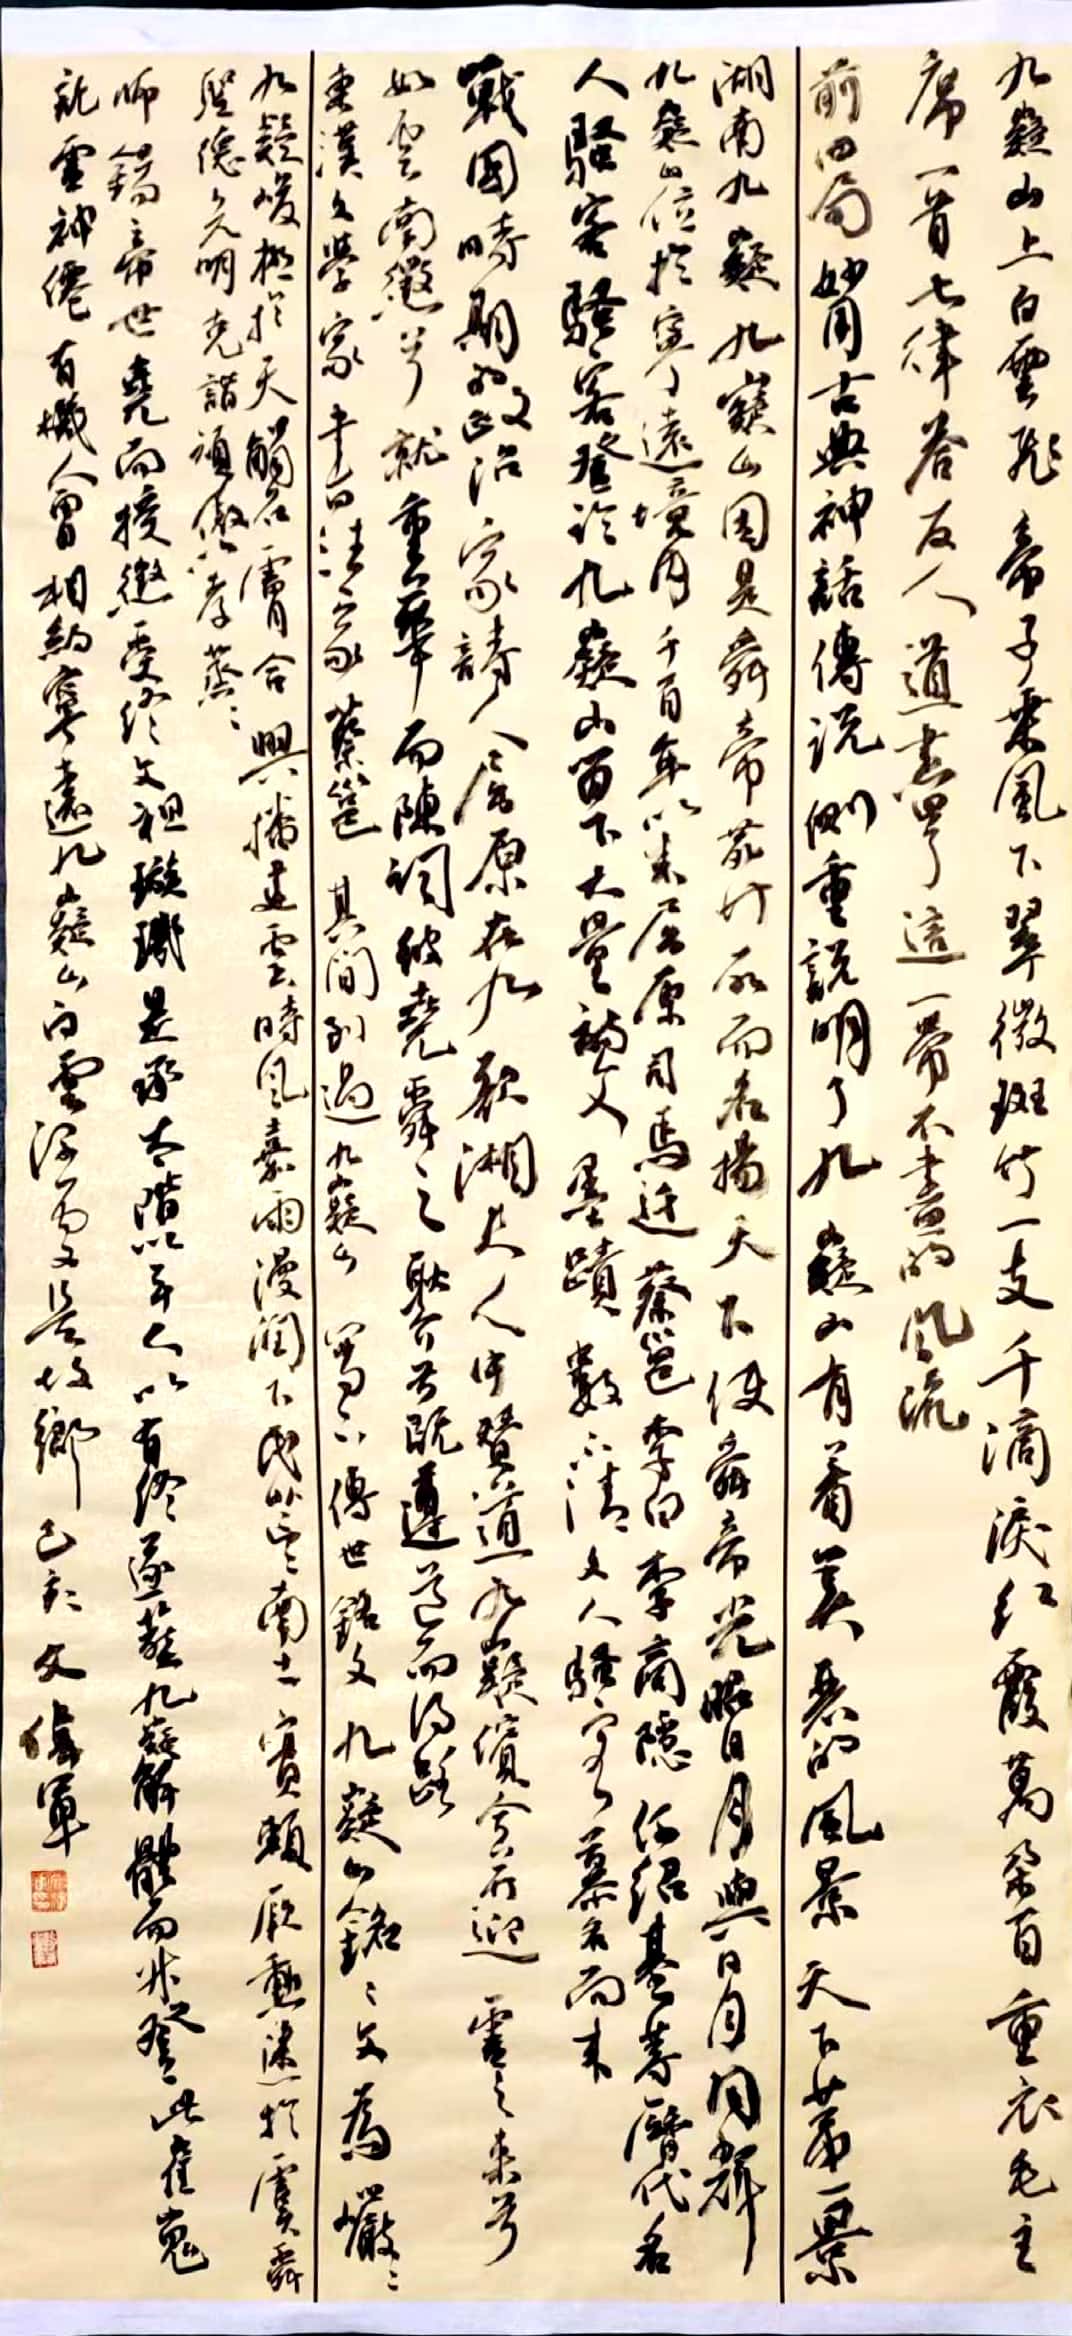 九嶷山上白雲飛帝子乘風下翠微斑竹一支千滴淚紅霞萬朵百重衣毛主
席一首七律答友人道盡寧遠一帶不盡的風流
前四句妙用古典神話傳说侧重說明了九嶷山有着美麗的風景天下第一景
湖南九嶷九嶷山因是舜帝藏精所而名揚天下使舜帝光昭日月與日月同輝
九嶷山位於寧遠境内千百年以来屈原司馬迁蔡邕李白李商隱何紹基等歷代名
人騷客騷客登臨九嶷山留下大量詩文墨蹟數不清文人騷客慕名而来
戰國時期的政治家詩人屈原在九歌湘夫人中贊道九嶷繽兮並迎靈之来兮
如雲南徵兮就重華而陳詞彼堯舜之耿介兮既遵道而得路
東漢文學家書法家蔡邕其間到過九嶷山寫下傳世銘文九嶷山銘文為巖巖
九嶷峻極於天觸石膚合興播建雲時風嘉雨漫潤下民芒芒南土實賴厥勳逮於虞舜
聖德光明克諧頑傲以孝蒸蒸
師錫帝世堯而授徵受终文祖璇璣是承太階以平人以有终遂葬九嶷解體而升登此崔嵬
託靈神僊有機人曾相約寧遠九嶷山白雲深處是故鄉己亥文偉軍